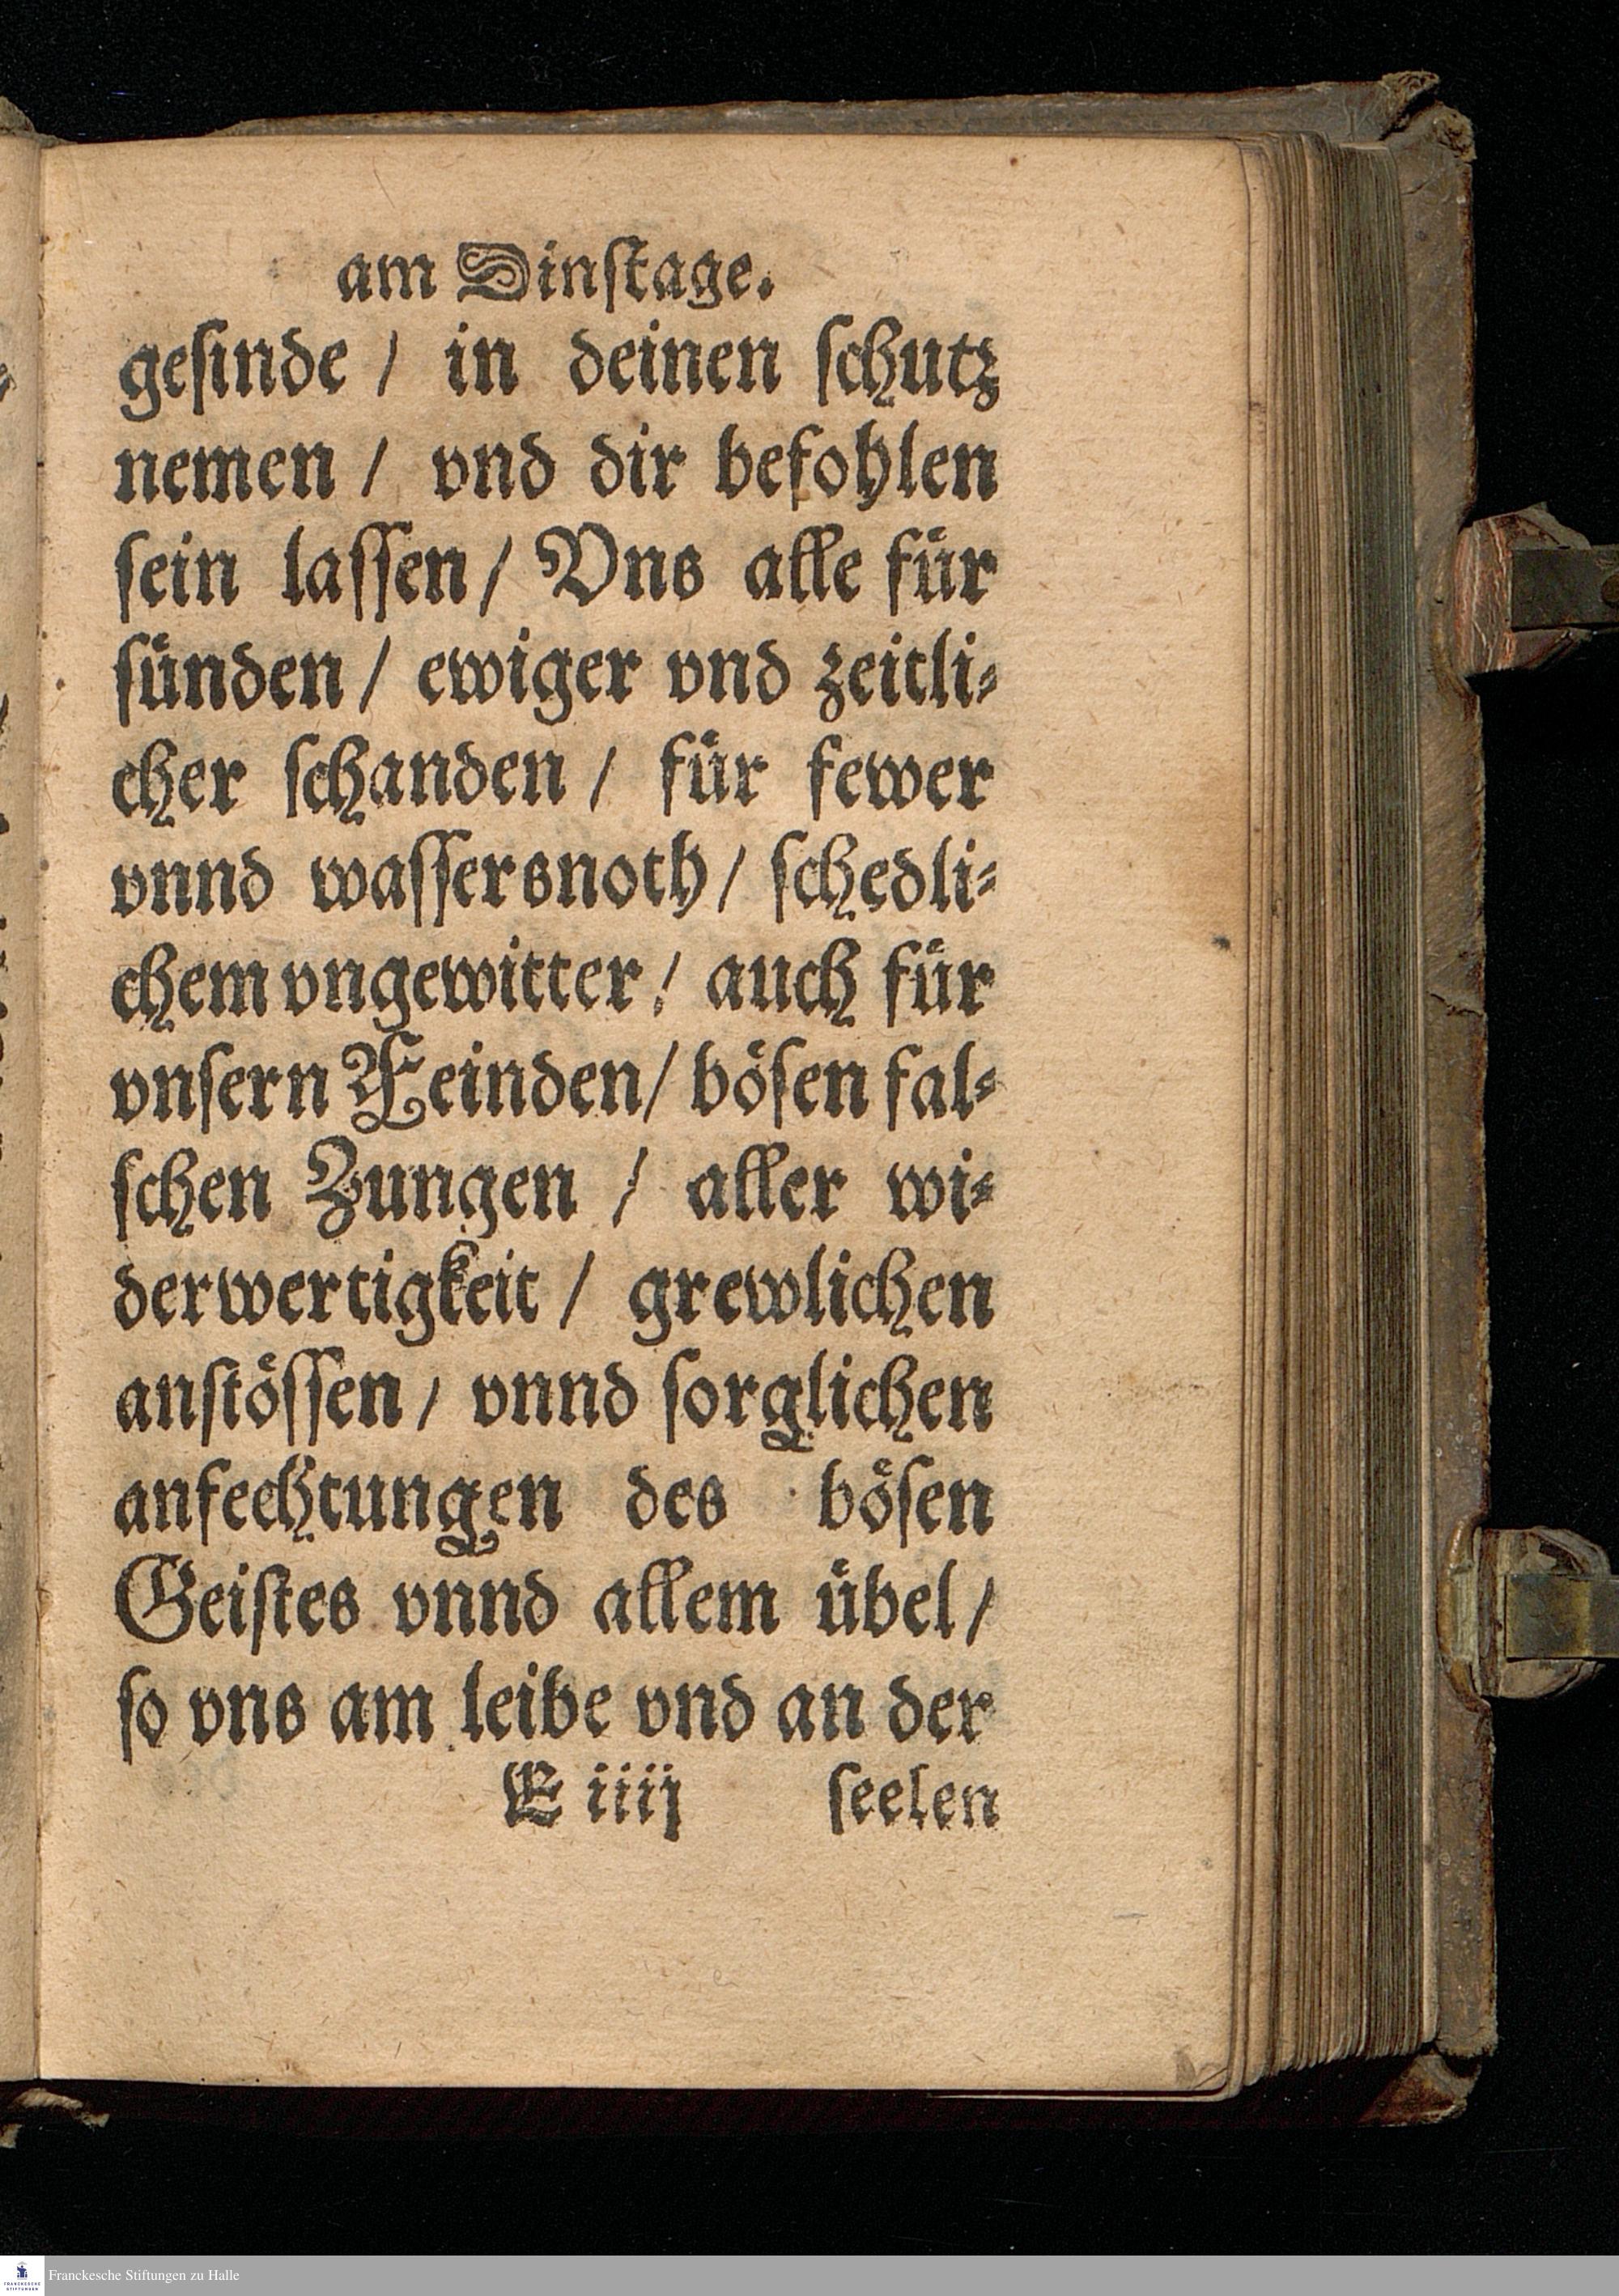 am Dinſtage.
geſinde / in deinen ſchutz
nemen / vnd dir befohlen
ſein laſſen / Vns alle für
ſünden / ewiger vnd zeitli⸗
cher ſchanden / für fewer
vnnd waſſersnoth / ſchedli⸗
chem vngewitter / auch für
vnſern Feinden / böſen fal⸗
ſchen Zungen / aller wi⸗
derwertigkeit / grewlichen
anſtöſſen / vnnd ſorglichen
anfechtungen des böſen
Geiſtes vnnd allem übel /
ſo vns am leibe vnd an der
E iiij ſeelen
FRANCKESCHE STIFTUNGEN
Franckesche Stiftungen zu Halle